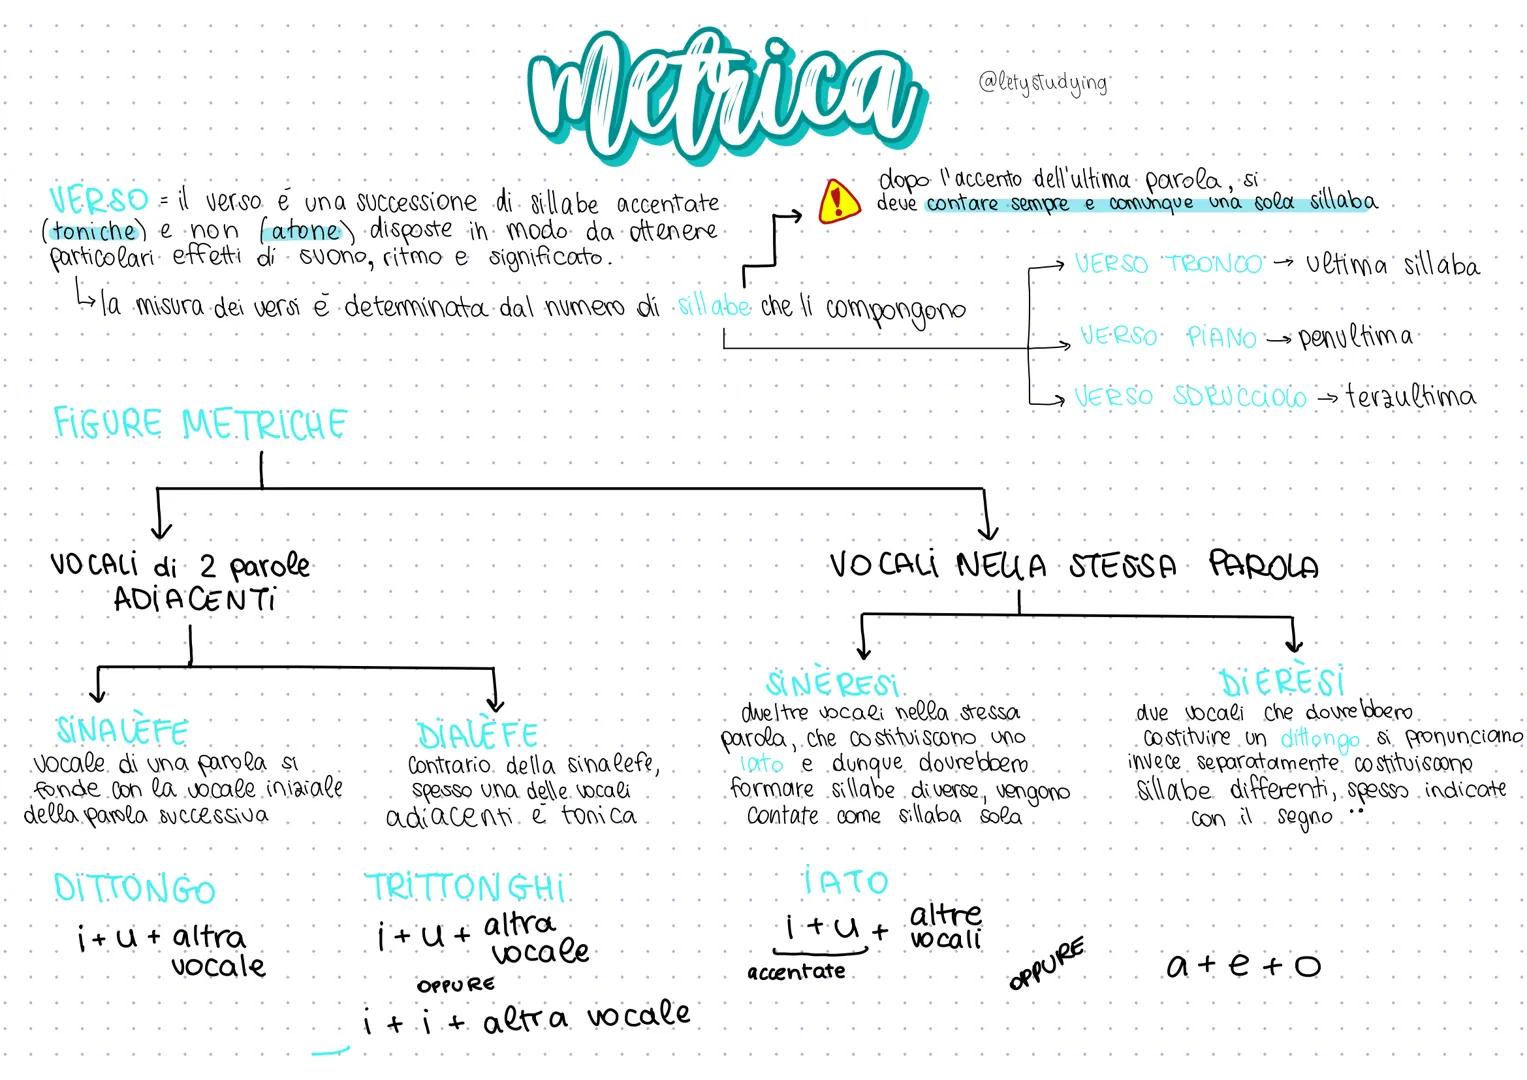 metrica
@letystudying
VERSO = il verso é una successione di sillabe accentate
(toniche) e non (atone) disposte in modo da ottenere
particolari effetti di suono, ritmo e significato.
la misura dei versi é determinata dal numero di sillabe che li compongono
dopo l'accento dell'ultima parola, si
deve contare sempre e comunque una sola sillaba
VERSO TRONCO → ultima sillaba
VERSO PIANO → penultima
VERSO SDRUCCIOLO → terzultima
FIGURE METRICHE
VOCALI di 2 parole
ADIACENTI
SINALÈFE
vocale di una parola si
fonde con la vocale iniziale
della parola successiva
DIALÈFE
contrario della sinalefe,
spesso una delle vocali
adiacenti è tonica
VOCALI NELLA STESSA PAROLA
SINÈRESI
due/tre vocali nella stessa
parola, che costituiscono uno
iato e dunque dovrebbero
formare sillabe diverse, vengono
contate come sillaba sola
DIERÈSI
due vocali che dovrebbero
costituire un dittongo si pronunciano
invece separatamente costituiscono
sillabe differenti, spesso indicate
con il segno ¨
DITTONGO
i + u + altra
vocale
TRITTONGHI
i + u + altra
vocale
OPPURE
i + i + altra vocale
IATO
i + u + altre
vocali
accentate
OPPURE
a + e + o